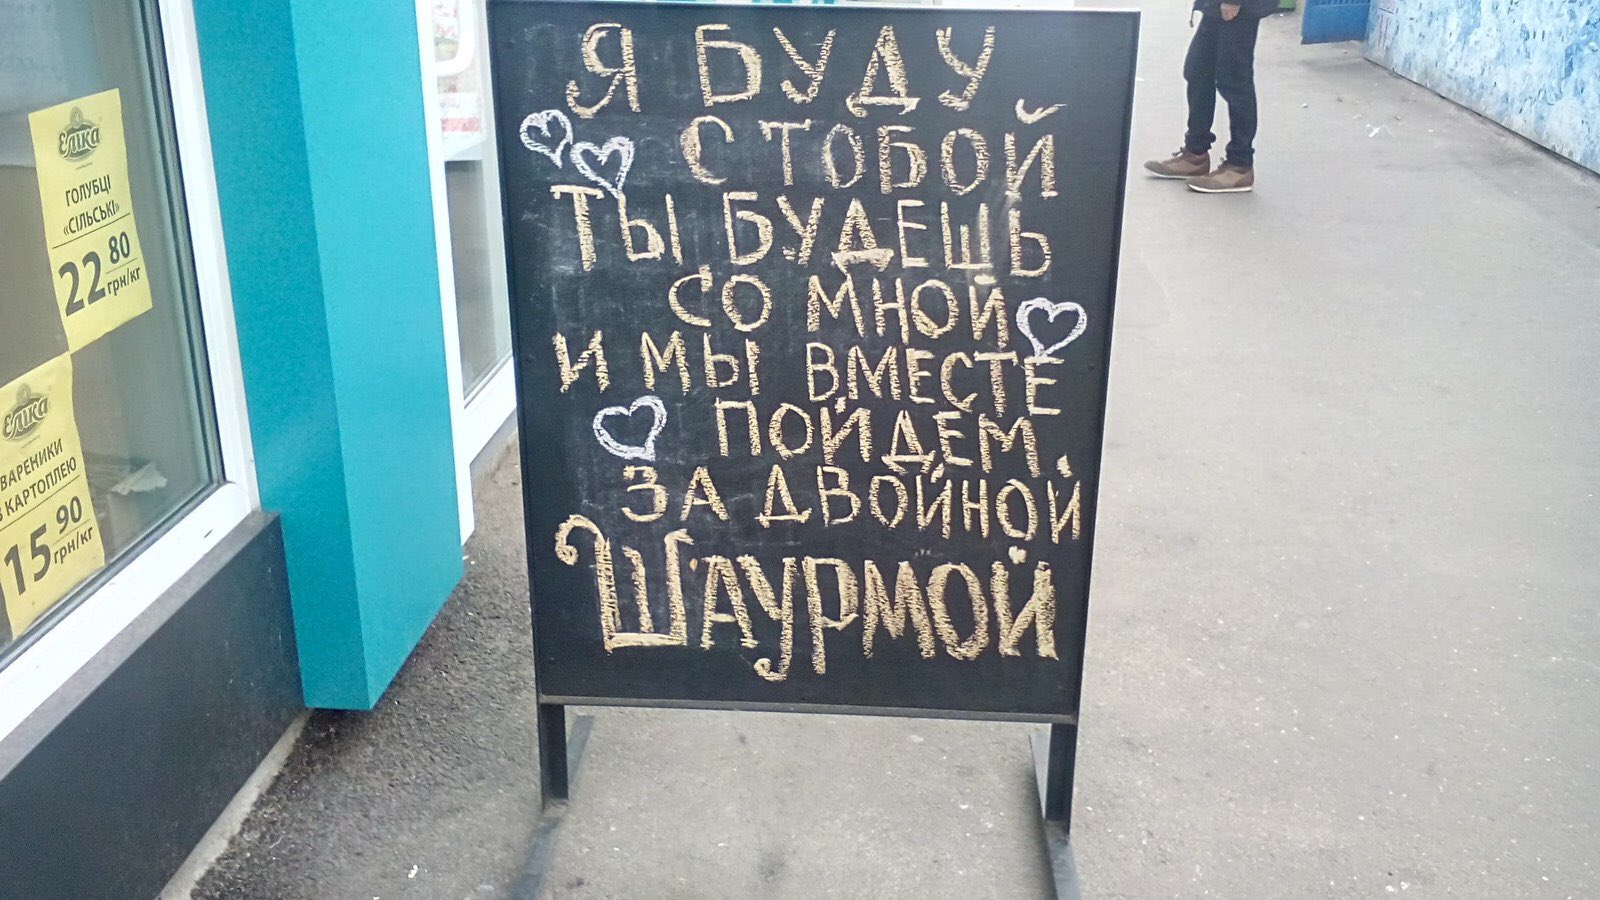 Я БУДУ
С ТОБОЙ
ТЫ БУДЕШЬ
СО МНОЙ
И МЫ ВМЕСТЕ
ПОЙДЕМ
ЗА ДВОЙНОЙ
ШАУРМОЙ
Еліка
ГОЛУБЦІ
«СІЛЬСЬКІ»
22 80
грн/кг
Еліка
ВАРЕНИКИ
З КАРТОПЛЕЮ
15 90
грн/кг